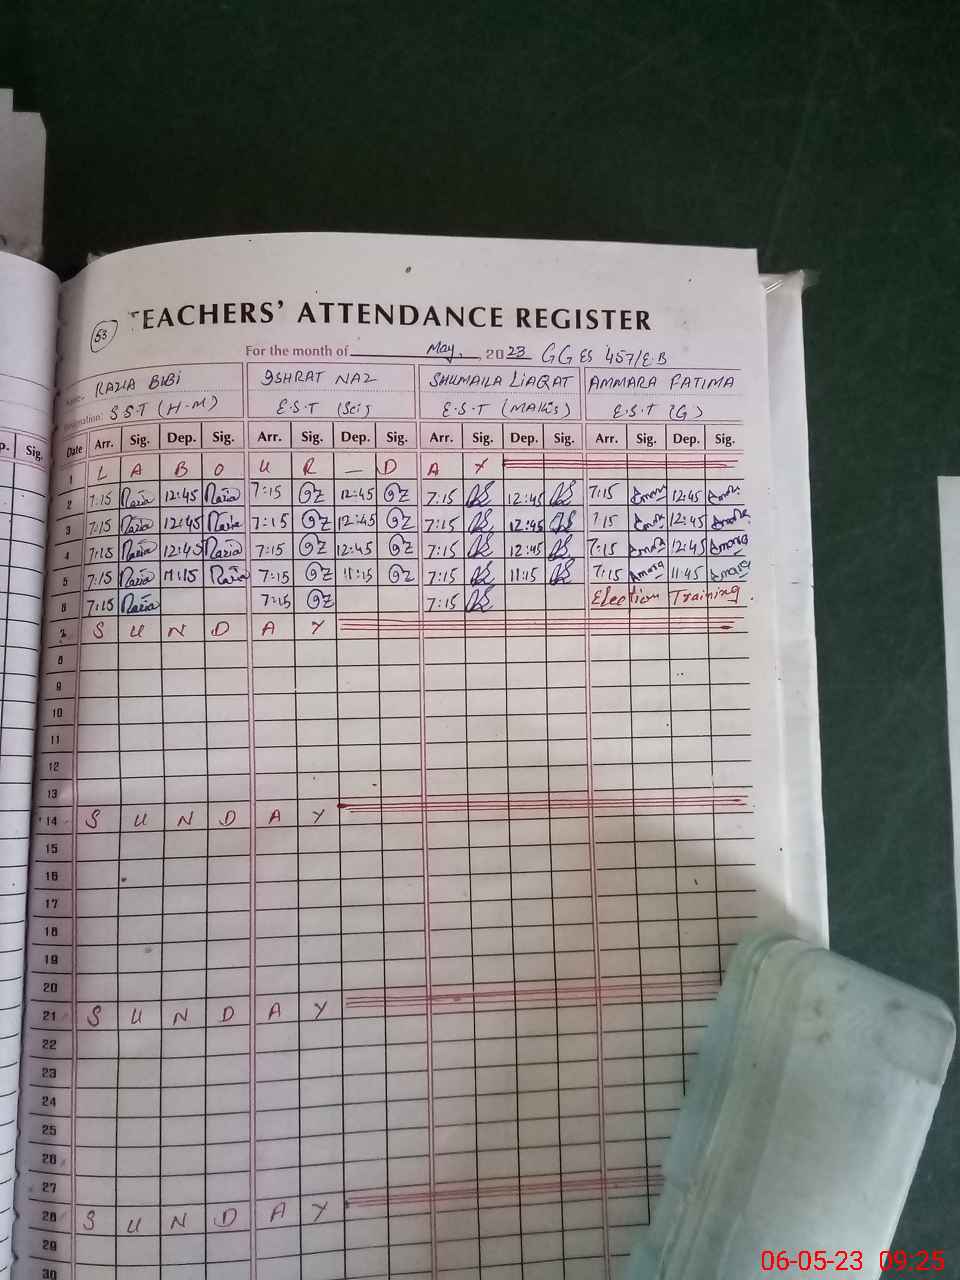 53
TEACHERS' ATTENDANCE REGISTER
For the month of May, 2023 GGES 457/E.B
Name. RAZIA BIBI ISHRAT NAZ SHUMAILA LIAQAT AMMARA FATIMA
Designation: S.S.T (H-M) E.S.T (Sci) E.S.T (Maths) E.S.T (G)
p. Sig. Date Arr. Sig. Dep. Sig. Arr. Sig. Dep. Sig. Arr. Sig. Dep. Sig. Arr. Sig. Dep. Sig.
1 L A B O U R — D A Y
2 7:15 Razia 12:45 Razia 7:15 IZ 12:45 IZ 7:15 12:45 7:15 Amara 12:45 Amara
3 7:15 Razia 12:45 Razia 7:15 IZ 12:45 IZ 7:15 12:45 7:15 Amara 12:45 Amara
4 7:15 Razia 12:45 Razia 7:15 IZ 12:45 IZ 7:15 12:45 7:15 Amara 12:45 Amara
5 7:15 Razia 11:15 Razia 7:15 IZ 11:15 IZ 7:15 11:15 7:15 Amara 11:45 Amara
6 7:15 Razia 7:15 IZ 7:15 Election Training.
7 S U N D A Y
8
9
10
11
12
13
14 S U N D A Y
15
16
17
18
19
20
21 S U N D A Y
22
23
24
25
26
27
28 S U N D A Y
29
30
06-05-23 09:25